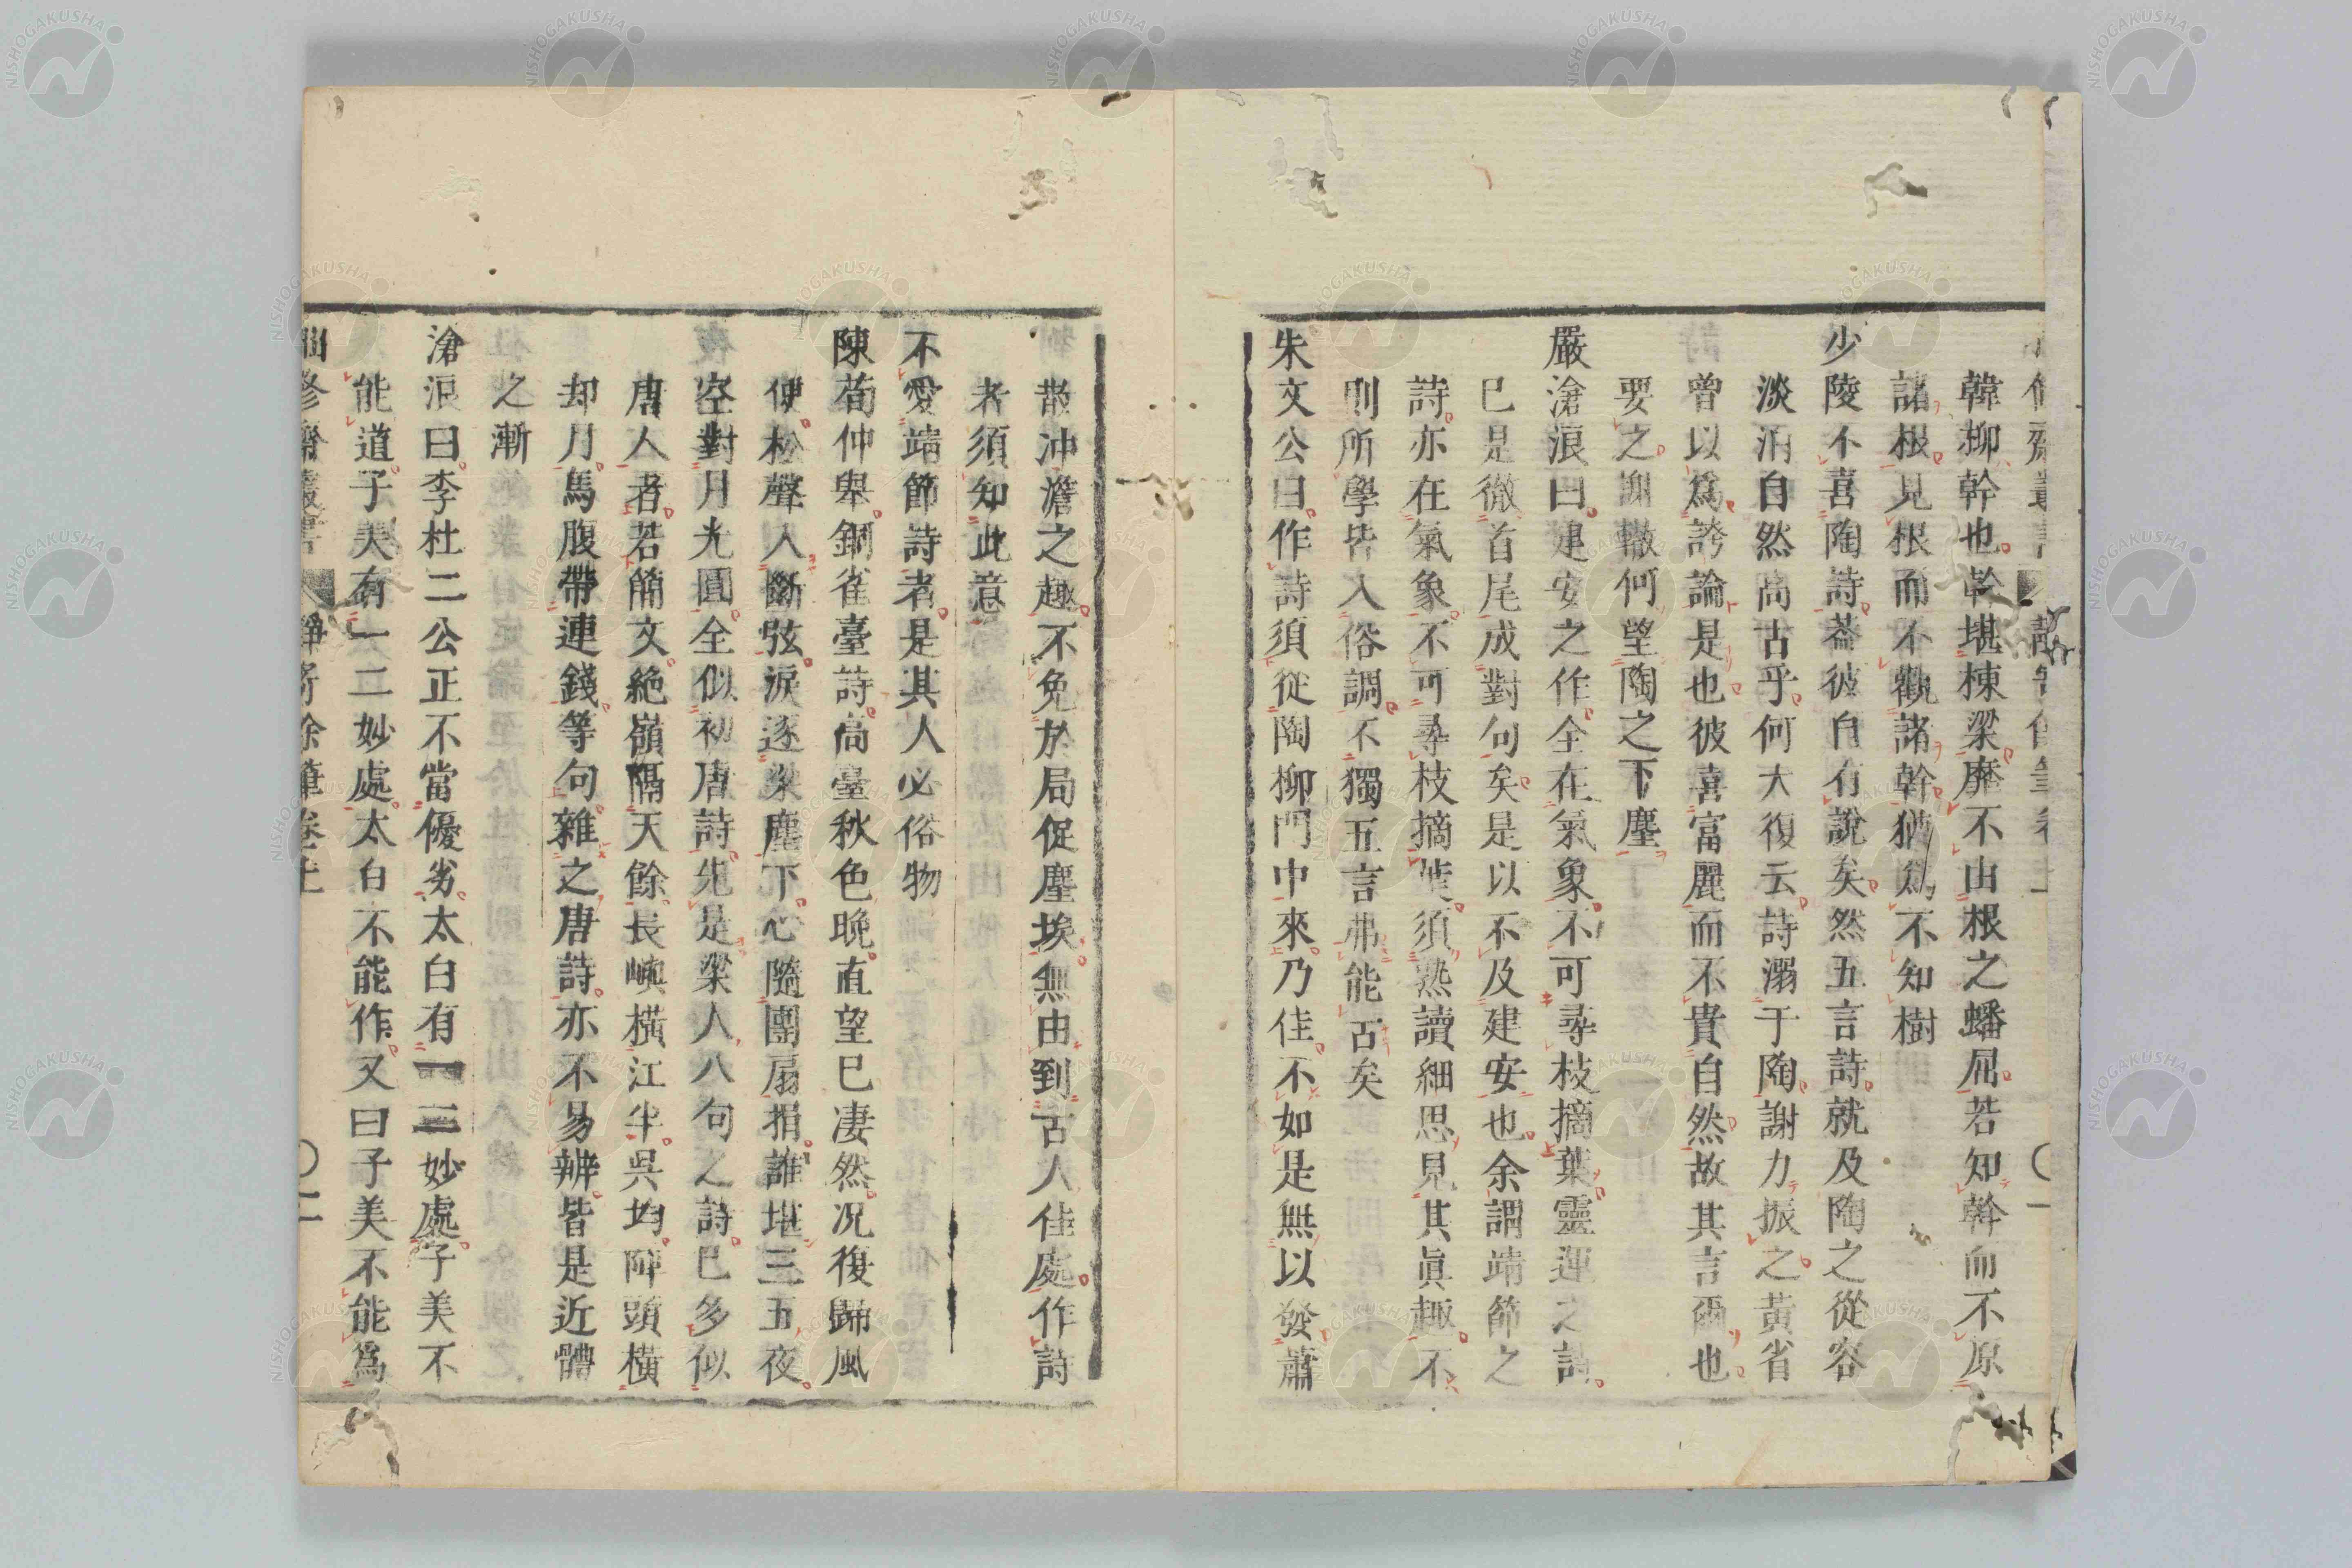 韓柳幹也幹堪棟梁靡不由根之蟠屈若知幹而不原
諸根見根而不觀諸幹猶爲不知樹
少陵不喜陶詩葢彼自有說矣然五言詩就及陶之從容
淡泊自然高古乎何大復云詩溺于陶謝力振之黃省
曾以爲誇論是也彼喜富麗而不貴自然故其言爾也
要之謝轍何望陶之下塵
嚴滄浪曰建安之作全在氣象不可尋枝摘葉靈運之詩
巳是徹首尾成對句矣是以不及建安也余謂靖節之
詩亦在氣象不可尋枝摘葉須熟讀細思見其眞趣不
則所學皆入俗調不獨五言弗能古矣
朱文公曰作詩須從陶柳門中來乃佳不如是無以發蕭
散沖澹之趣不免於局促塵埃無由到古人佳處作詩
者須知此意
不愛靖節詩者是其人必俗物
陳荀仲卑銅雀臺詩高臺秋色晚直望巳凄然况復歸風
便松聲入斷弦淚逐梁塵下心隨團扇捐誰堪三五夜
空對月光圓全似初唐詩先是梁人八句之詩巳多似
唐人者若簡文絶嶺隔天餘長嶼橫江半吳均陣頭橫
却月馬腹帶連錢等句雜之唐詩亦不易辨皆是近體
之漸
滄浪曰李杜二公正不當優劣太白有一二妙處子美不
能道子美有一二妙處太白不能作又曰子美不能爲
修齋叢書 靜寄餘筆卷上 〇二